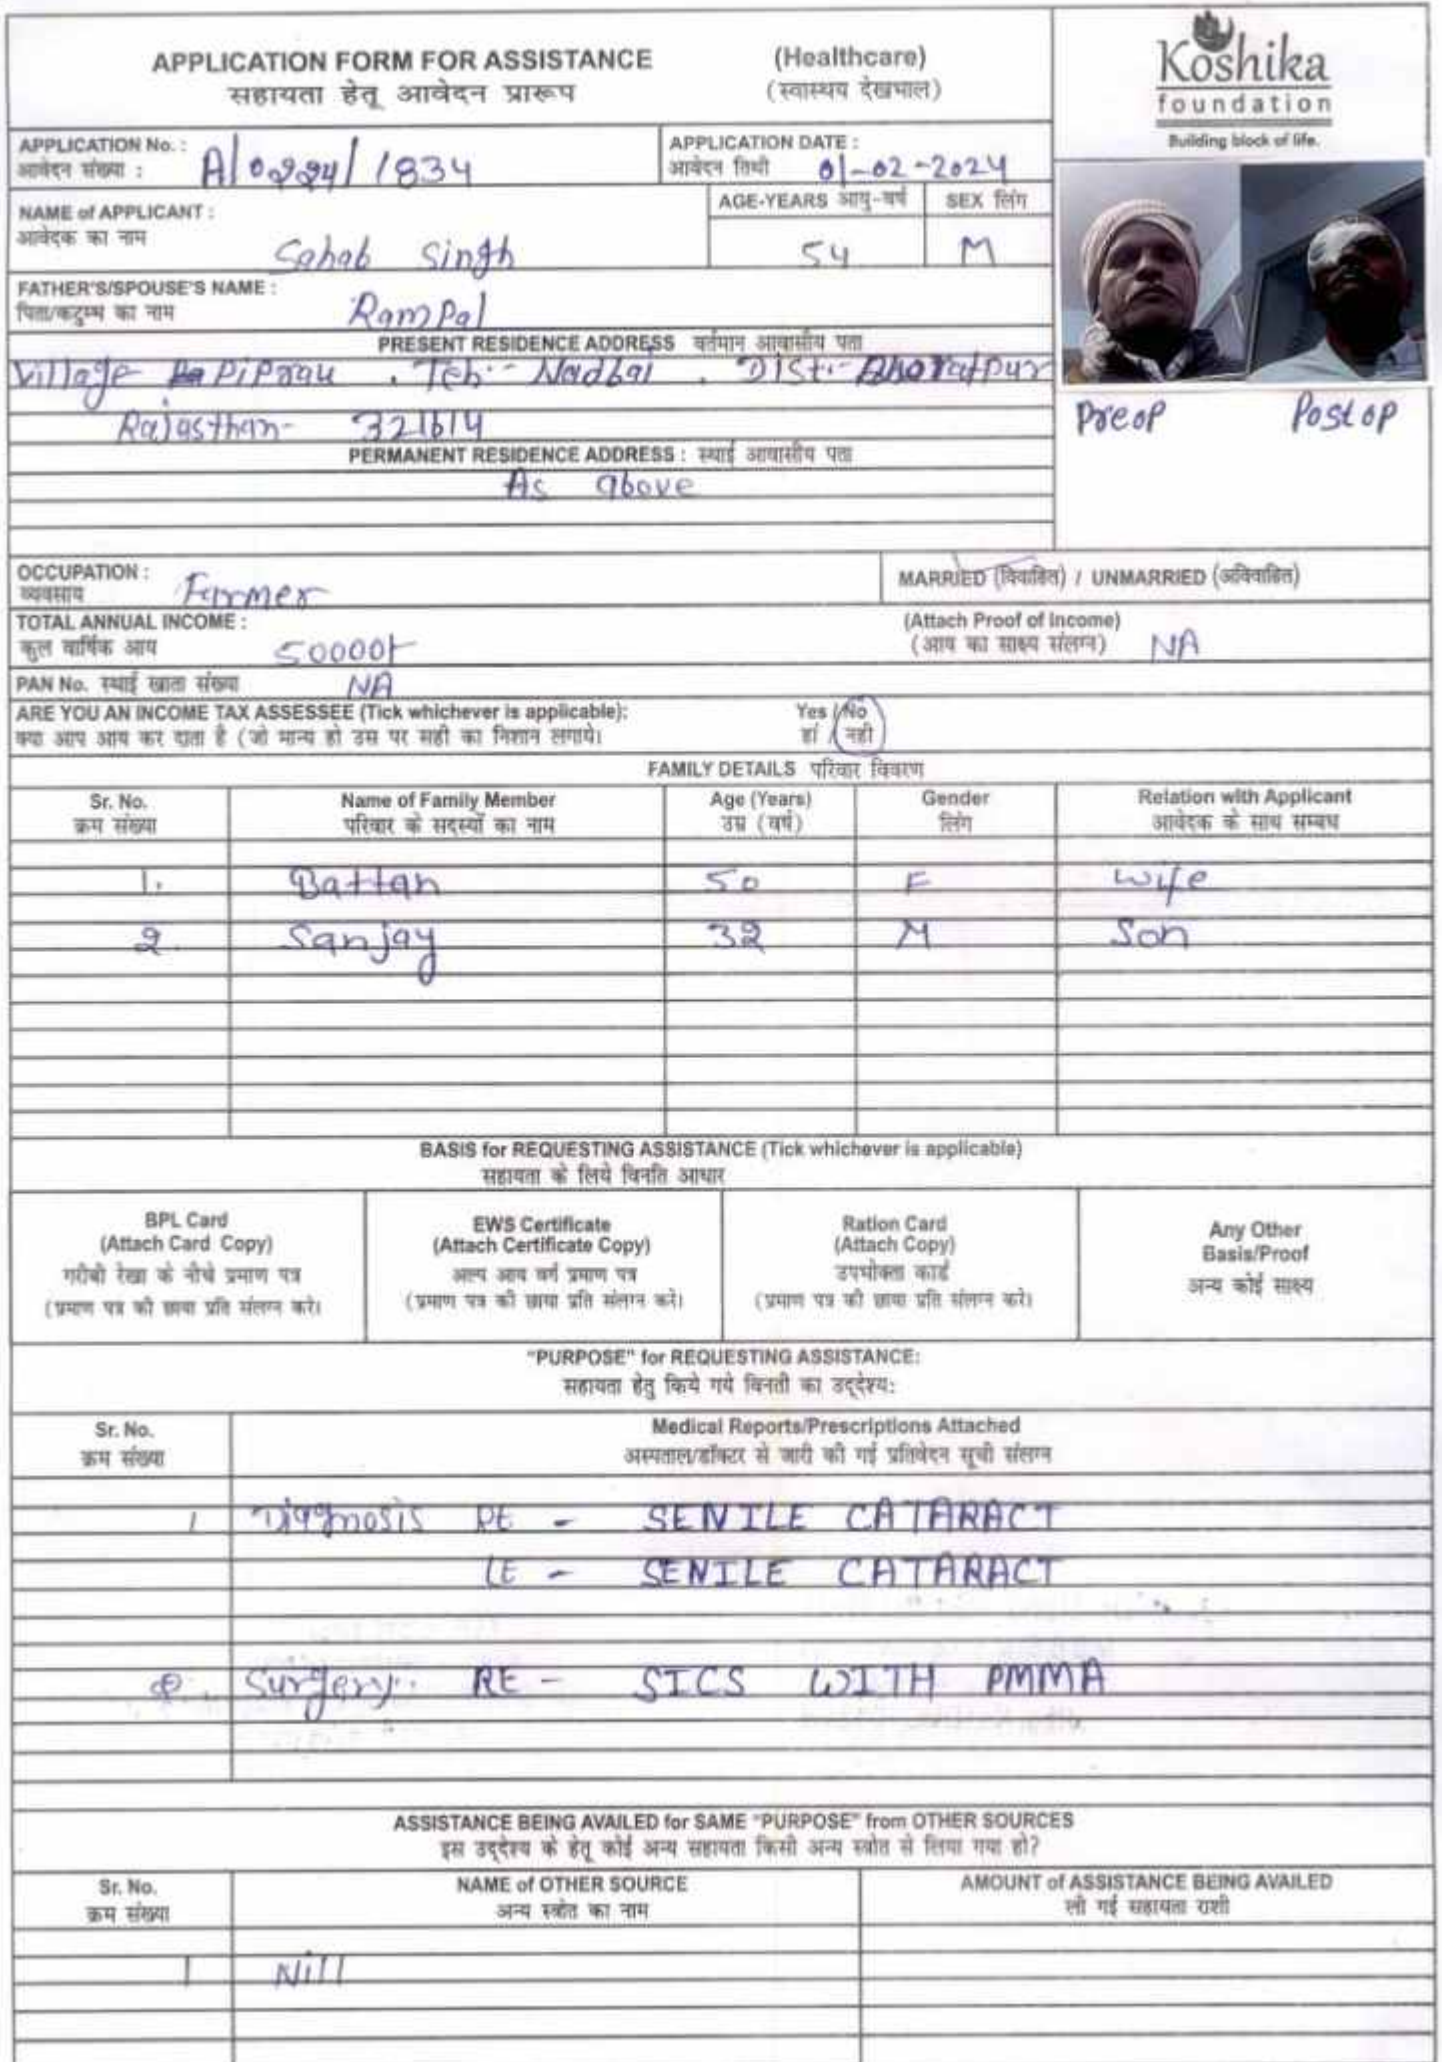 APPLICATION FORM FOR ASSISTANCE (Healthcare)
सहायता हेतू आवेदन प्रारूप (स्वास्थय देखभाल)
Koshika
foundation
Building block of life.
APPLICATION No. : A/0224/1834
आवेदन संख्या :
APPLICATION DATE :
आवेदन तिथी 01-02-2024
NAME of APPLICANT :
आवेदक का नाम Sahab Singh
AGE-YEARS आयु-वर्ष
54
SEX लिंग
M
FATHER'S/SPOUSE'S NAME :
पिता/कटुम्भ का नाम Rampal
PRESENT RESIDENCE ADDRESS वर्तमान आवासीय पता
Village Piprau . Teh:- Nadbai . Dist:- Bharatpur
Rajasthan- 321614
Preop Postop
PERMANENT RESIDENCE ADDRESS : स्थाई आवासीय पता
As above
OCCUPATION :
व्यवसाय Farmer
MARRIED (विवाहित) / UNMARRIED (अविवाहित)
TOTAL ANNUAL INCOME :
कुल वार्षिक आय 50000/-
(Attach Proof of Income)
(आय का साक्ष्य संलग्न) NA
PAN No. स्थाई खाता संख्या NA
ARE YOU AN INCOME TAX ASSESSEE (Tick whichever is applicable): Yes / No
क्या आप आय कर दाता है (जो मान्य हो उस पर सही का निशान लगाये। हां / नही
FAMILY DETAILS परिवार विवरण
Sr. No. Name of Family Member Age (Years) Gender Relation with Applicant
क्रम संख्या परिवार के सदस्यों का नाम उम्र (वर्ष) लिंग आवेदक के साथ सम्बध
1. Battan 50 F Wife
2. Sanjay 32 M Son
BASIS for REQUESTING ASSISTANCE (Tick whichever is applicable)
सहायता के लिये विनति आधार
BPL Card
(Attach Card Copy)
गरीबी रेखा के नीचे प्रमाण पत्र
(प्रमाण पत्र की छाया प्रति संलग्न करे।
EWS Certificate
(Attach Certificate Copy)
अल्प आय वर्ग प्रमाण पत्र
(प्रमाण पत्र की छाया प्रति संलग्न करे।
Ration Card
(Attach Copy)
उपभोक्ता कार्ड
(प्रमाण पत्र की छाया प्रति संलग्न करे।
Any Other
Basis/Proof
अन्य कोई साक्ष्य
"PURPOSE" for REQUESTING ASSISTANCE:
सहायता हेतु किये गये विनती का उद्देश्य:
Sr. No. Medical Reports/Prescriptions Attached
क्रम संख्या अस्पताल/डॉक्टर से जारी की गई प्रतिवेदन सूची संलग्न
1 Diagnosis RE - SENILE CATARACT
LE - SENILE CATARACT
2. Surgery. RE - SICS WITH PMMA
ASSISTANCE BEING AVAILED for SAME "PURPOSE" from OTHER SOURCES
इस उद्देश्य के हेतू कोई अन्य सहायता किसी अन्य स्त्रोत से लिया गया हो?
Sr. No. NAME of OTHER SOURCE AMOUNT of ASSISTANCE BEING AVAILED
क्रम संख्या अन्य स्त्रोत का नाम ली गई सहायता राशी
1 Nill